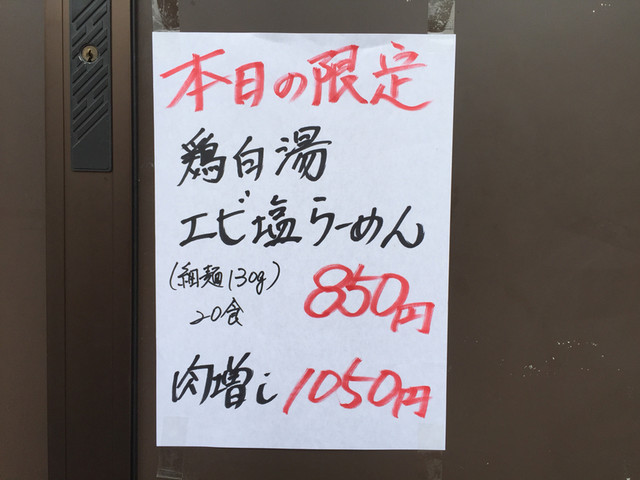 本日の限定
鶏白湯
エビ塩らーめん
(細麺130g)
850円
20食
肉増し 1050円